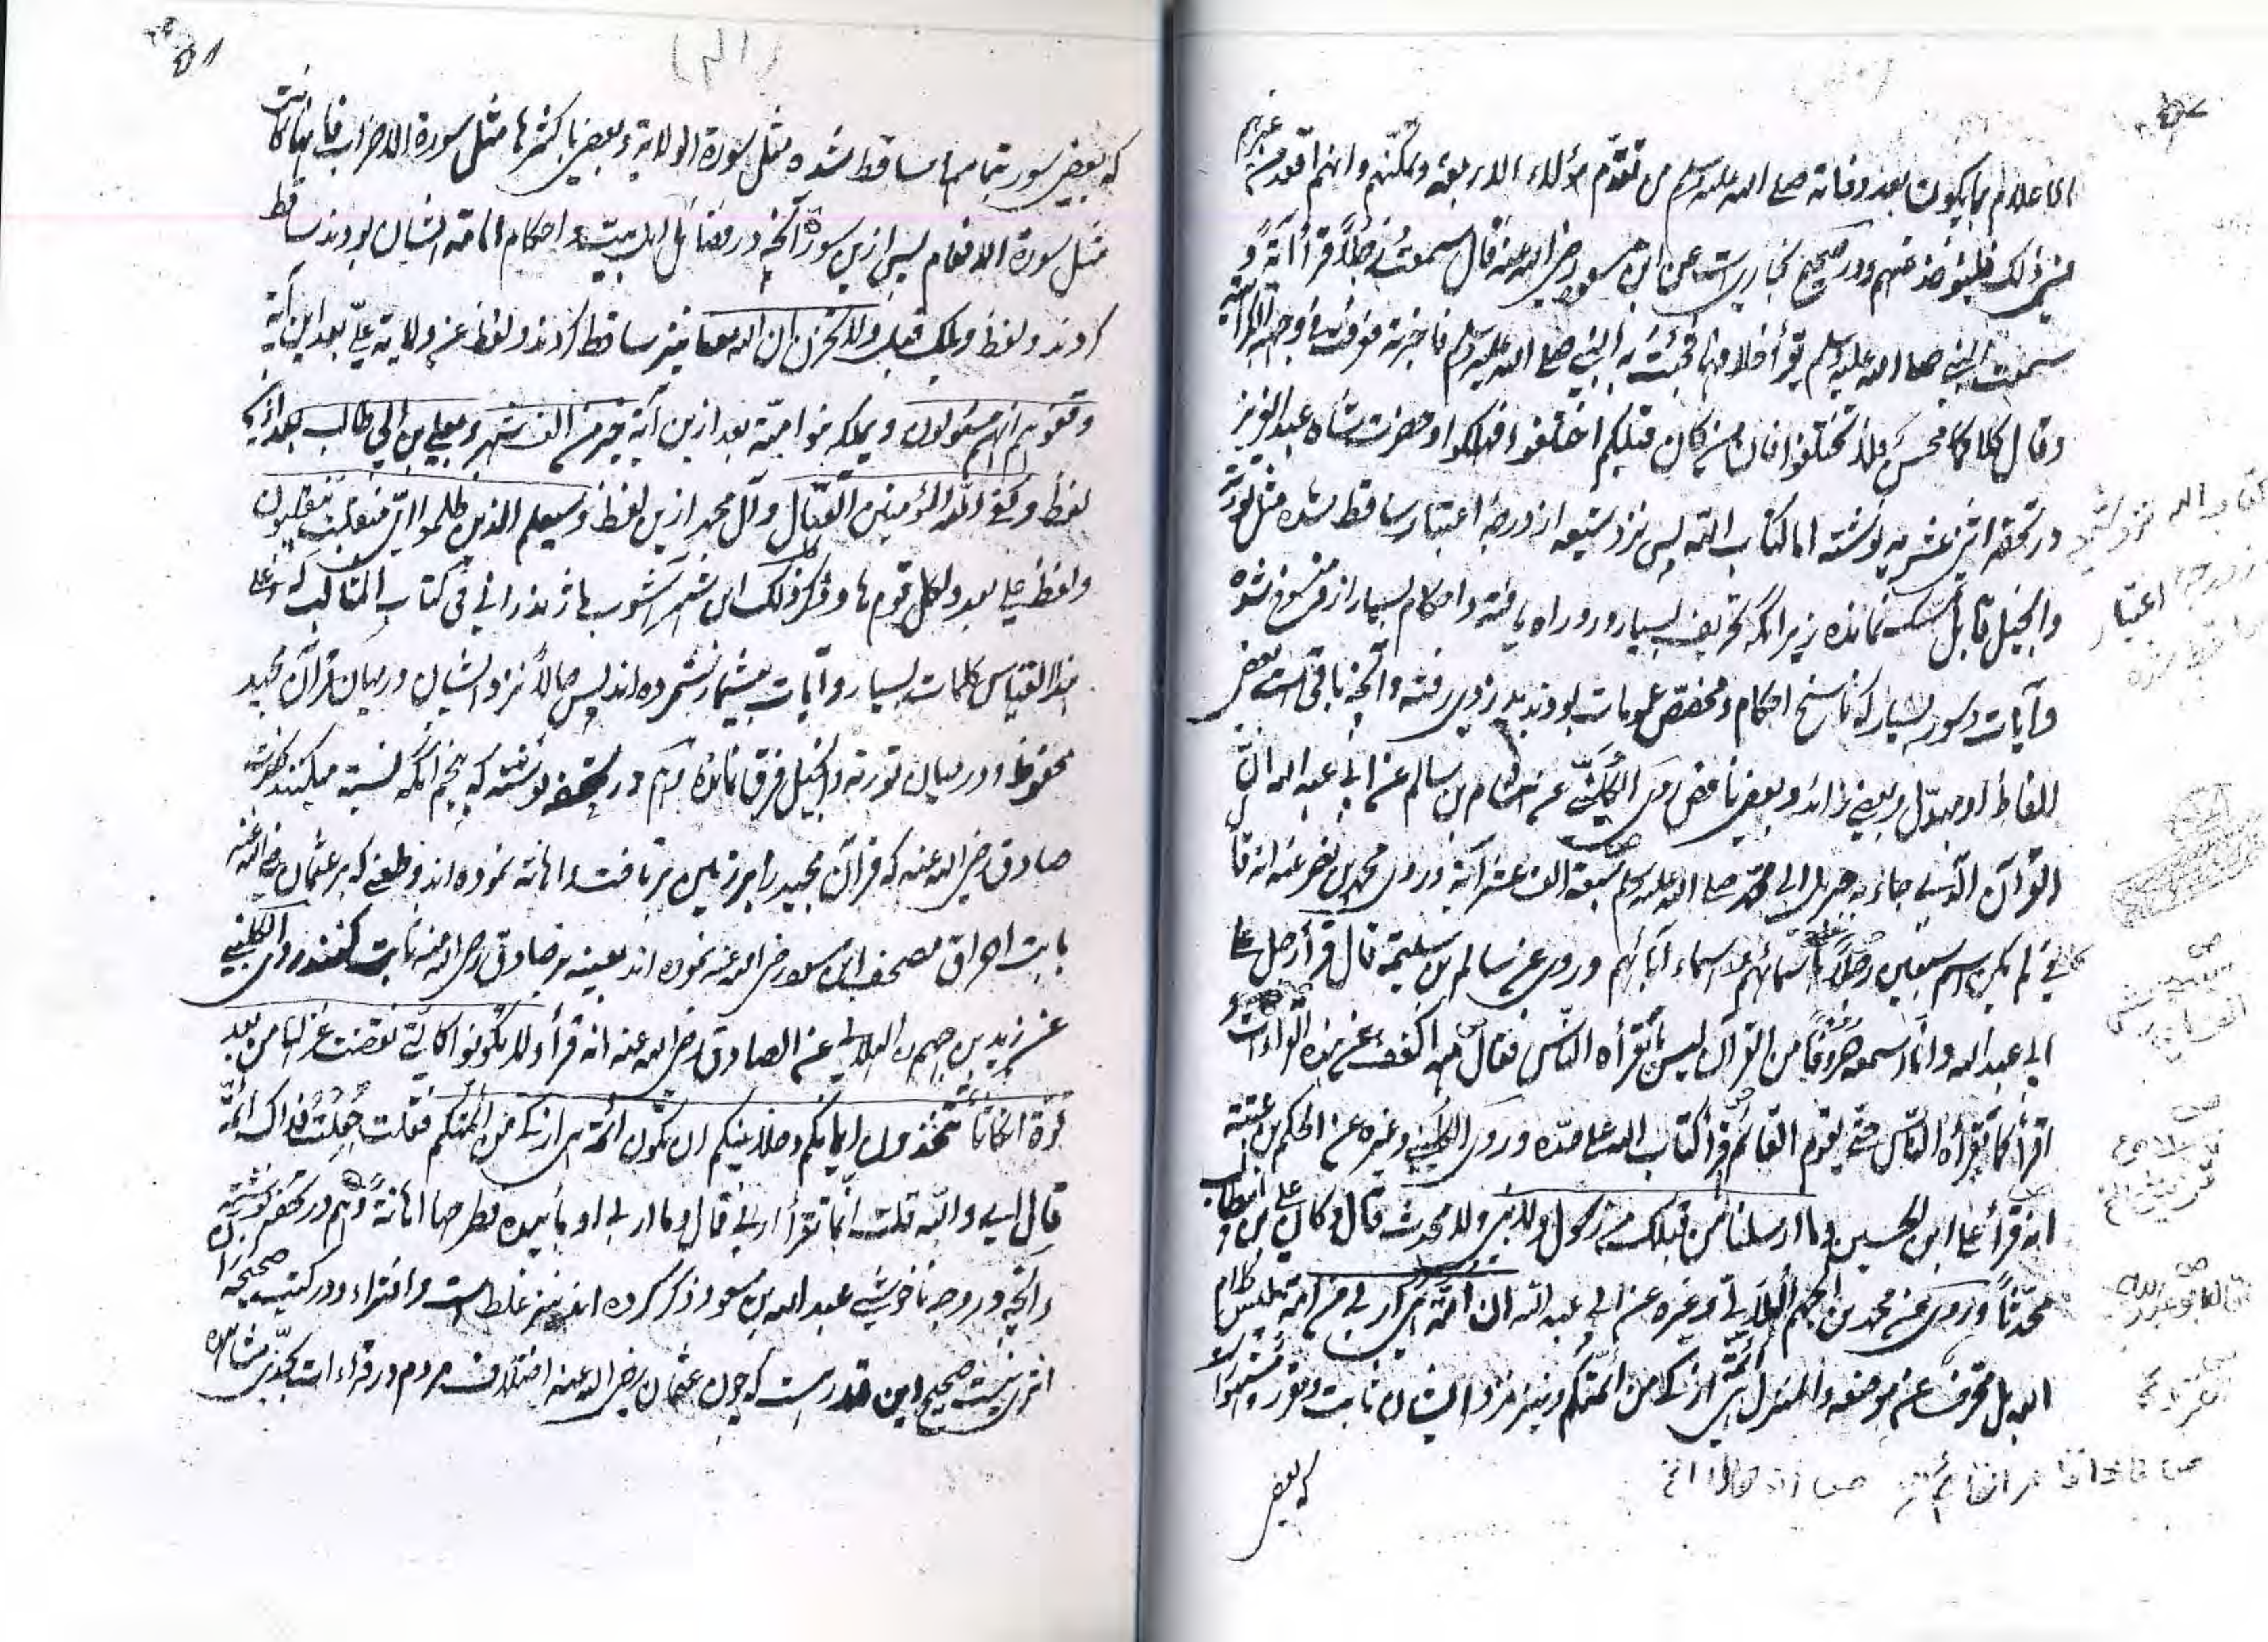 الاعلام بما يكون بعد وفاته صلى الله عليه وسلم من تقدم هؤلاء الاربعة وتمكنهم وانهم اقعد من غيرهم
في ذلك فليؤخذ عنهم ودر صحيح بخارى است عن ابن مسعود رضى الله عنه قال سمعت رجلاً قرأ آية و
سمعت النبى صلى الله عليه وسلم يقرأ خلافها فجئت به النبى صلى الله عليه وسلم فاخبرته فعرفت فى وجهه الكراهية
وقال كلاكما محسن فلا تختلفوا فان من كان قبلكم اختلفوا فهلكوا وحضرت شاه عبد العزيز
در تحفه اثنى عشريه نوشته اما كتاب الله پس نزد شيعه از درجه اعتبار ساقط شده مثل تورته
وانجيل قابل تمسك نمانده زيرا كه تحريف بسيار درو راه يافته واحكام بسيار از و منسوخ شده
وآيات وسور بسيار كه ناسخ احكام ومخصص عمومات بودند بدزدى رفته وآنچه باقى است بعض
الفاظ او مبدل وبعضى زائد وبعضى ناقص روى الكلينى عن هشام بن سالم عن ابى عبد الله ان
القرآن الذى جاء به جبريل الى محمد صلى الله عليه وسلم سبعة الف عشر آية وروى محمد بن نصر عنه انه قا
كان فى لم يكن اسم سبعين رجلاً باسمائهم واسماء آبائهم وروى عن سالم بن سليمة قال قرأ رجل على
ابى عبد الله وانا اسمعه حروفاً من القرآن ليس ما يقرأه الناس فقال مه اكفف عن هذه القراءات
اقرأ كما يقرأه الناس حتى يقوم القائم قرأ كتاب الله على حده وروى الكلينى وغيره عن الحكم بن عتيبة
انه قرأ على ابن الحسين وما ارسلنا من قبلك من رسول ولا نبى ولا محدث قال وكان على بن ابيطالب
محدثاً وروى عن محمد بن الجهم الهلالى وغيره عن ابى عبد الله ان امة هى اربى من امة ليس كلام
الله بل محرف عن موضعه والمنزل ائمة هى ازكى من ائمتكم ونيز نزد ايشان ثابت ومقرر ومشهور
كه بعض
كتاب الله نزد شيعه
از درجه اعتبار
ساقط شده
كه بعض سور بتمامها ساقط شده مثل سورة الولاية وبعضى باكثرها مثل سورة الاحزاب فانها كانت
مثل سورة الانعام پس ازين سوره آنچه در فضائل اهل بيت و احكام امامة ايشان بودند ساقط
كردند ولفظ ويلك قبل ولا تحزن ان الله معنا نيز ساقط كردند ولفظ عن ولاية على بعد اين آية
وقفوهم انهم مسئولون ويملكه بنو امية بعد ازين آية خير من الف شهر وبعلى بن ابى طالب بعد ازين
لفظ وكفى الله المؤمنين القتال وآل محمد ازين لفظ وسيعلم الذين ظلموا اى منقلب ينقلبون
ولفظ على بعد ولكل قوم هاد وذكر ذلك ابن شهر آشوب ماژندرانى فى كتاب المثالب له وعلى
هذا القياس كلمات بسيار وآيات بيشمار شمرده اند پس حالاً نزد ايشان درميان قرآن مجيد
محفوظ ودرميان تورته وانجيل فرق نمانده وهم در تحفه نوشته كه پنجم آنكه نسبة ميكنند بحضرت
صادق رضى الله عنه كه قرآن مجيد را بر زمين برتافت واهانة نموده اند وطعنى كه بر عثمان رضى الله عنه
بابت احراق مصحف ابن مسعود رضى الله عنه نموده اند بعينه بر صادق رضى الله عنه ثابت كنند روى الكلينى
عن زيد بن جهم الهلالى عن الصادق رضى الله عنه انه قرأ ولا تكونوا كالتى نقضت غزلها من بعد
قوة انكاثاً تتخذون ايمانكم دخلا بينكم ان تكون ائمة هى ازكى من ائمتكم فقلت جعلت فداك ائمة
قال اى والله قلت انما نقرأ اربى قال وما اربى اومأ بيده بطرحها اهانةً وهم در تحفه نوشته
وآنچه در وجه ناخوشى عبد الله بن مسعود ذكر كرده اند نيز غلط است وافتراء ودر كتب صحيحه ازان
اثرى نيست صحيح اين قدر است كه چون عثمان رضى الله عنه اختلاف مردم در قراءات بحدى مشاهده